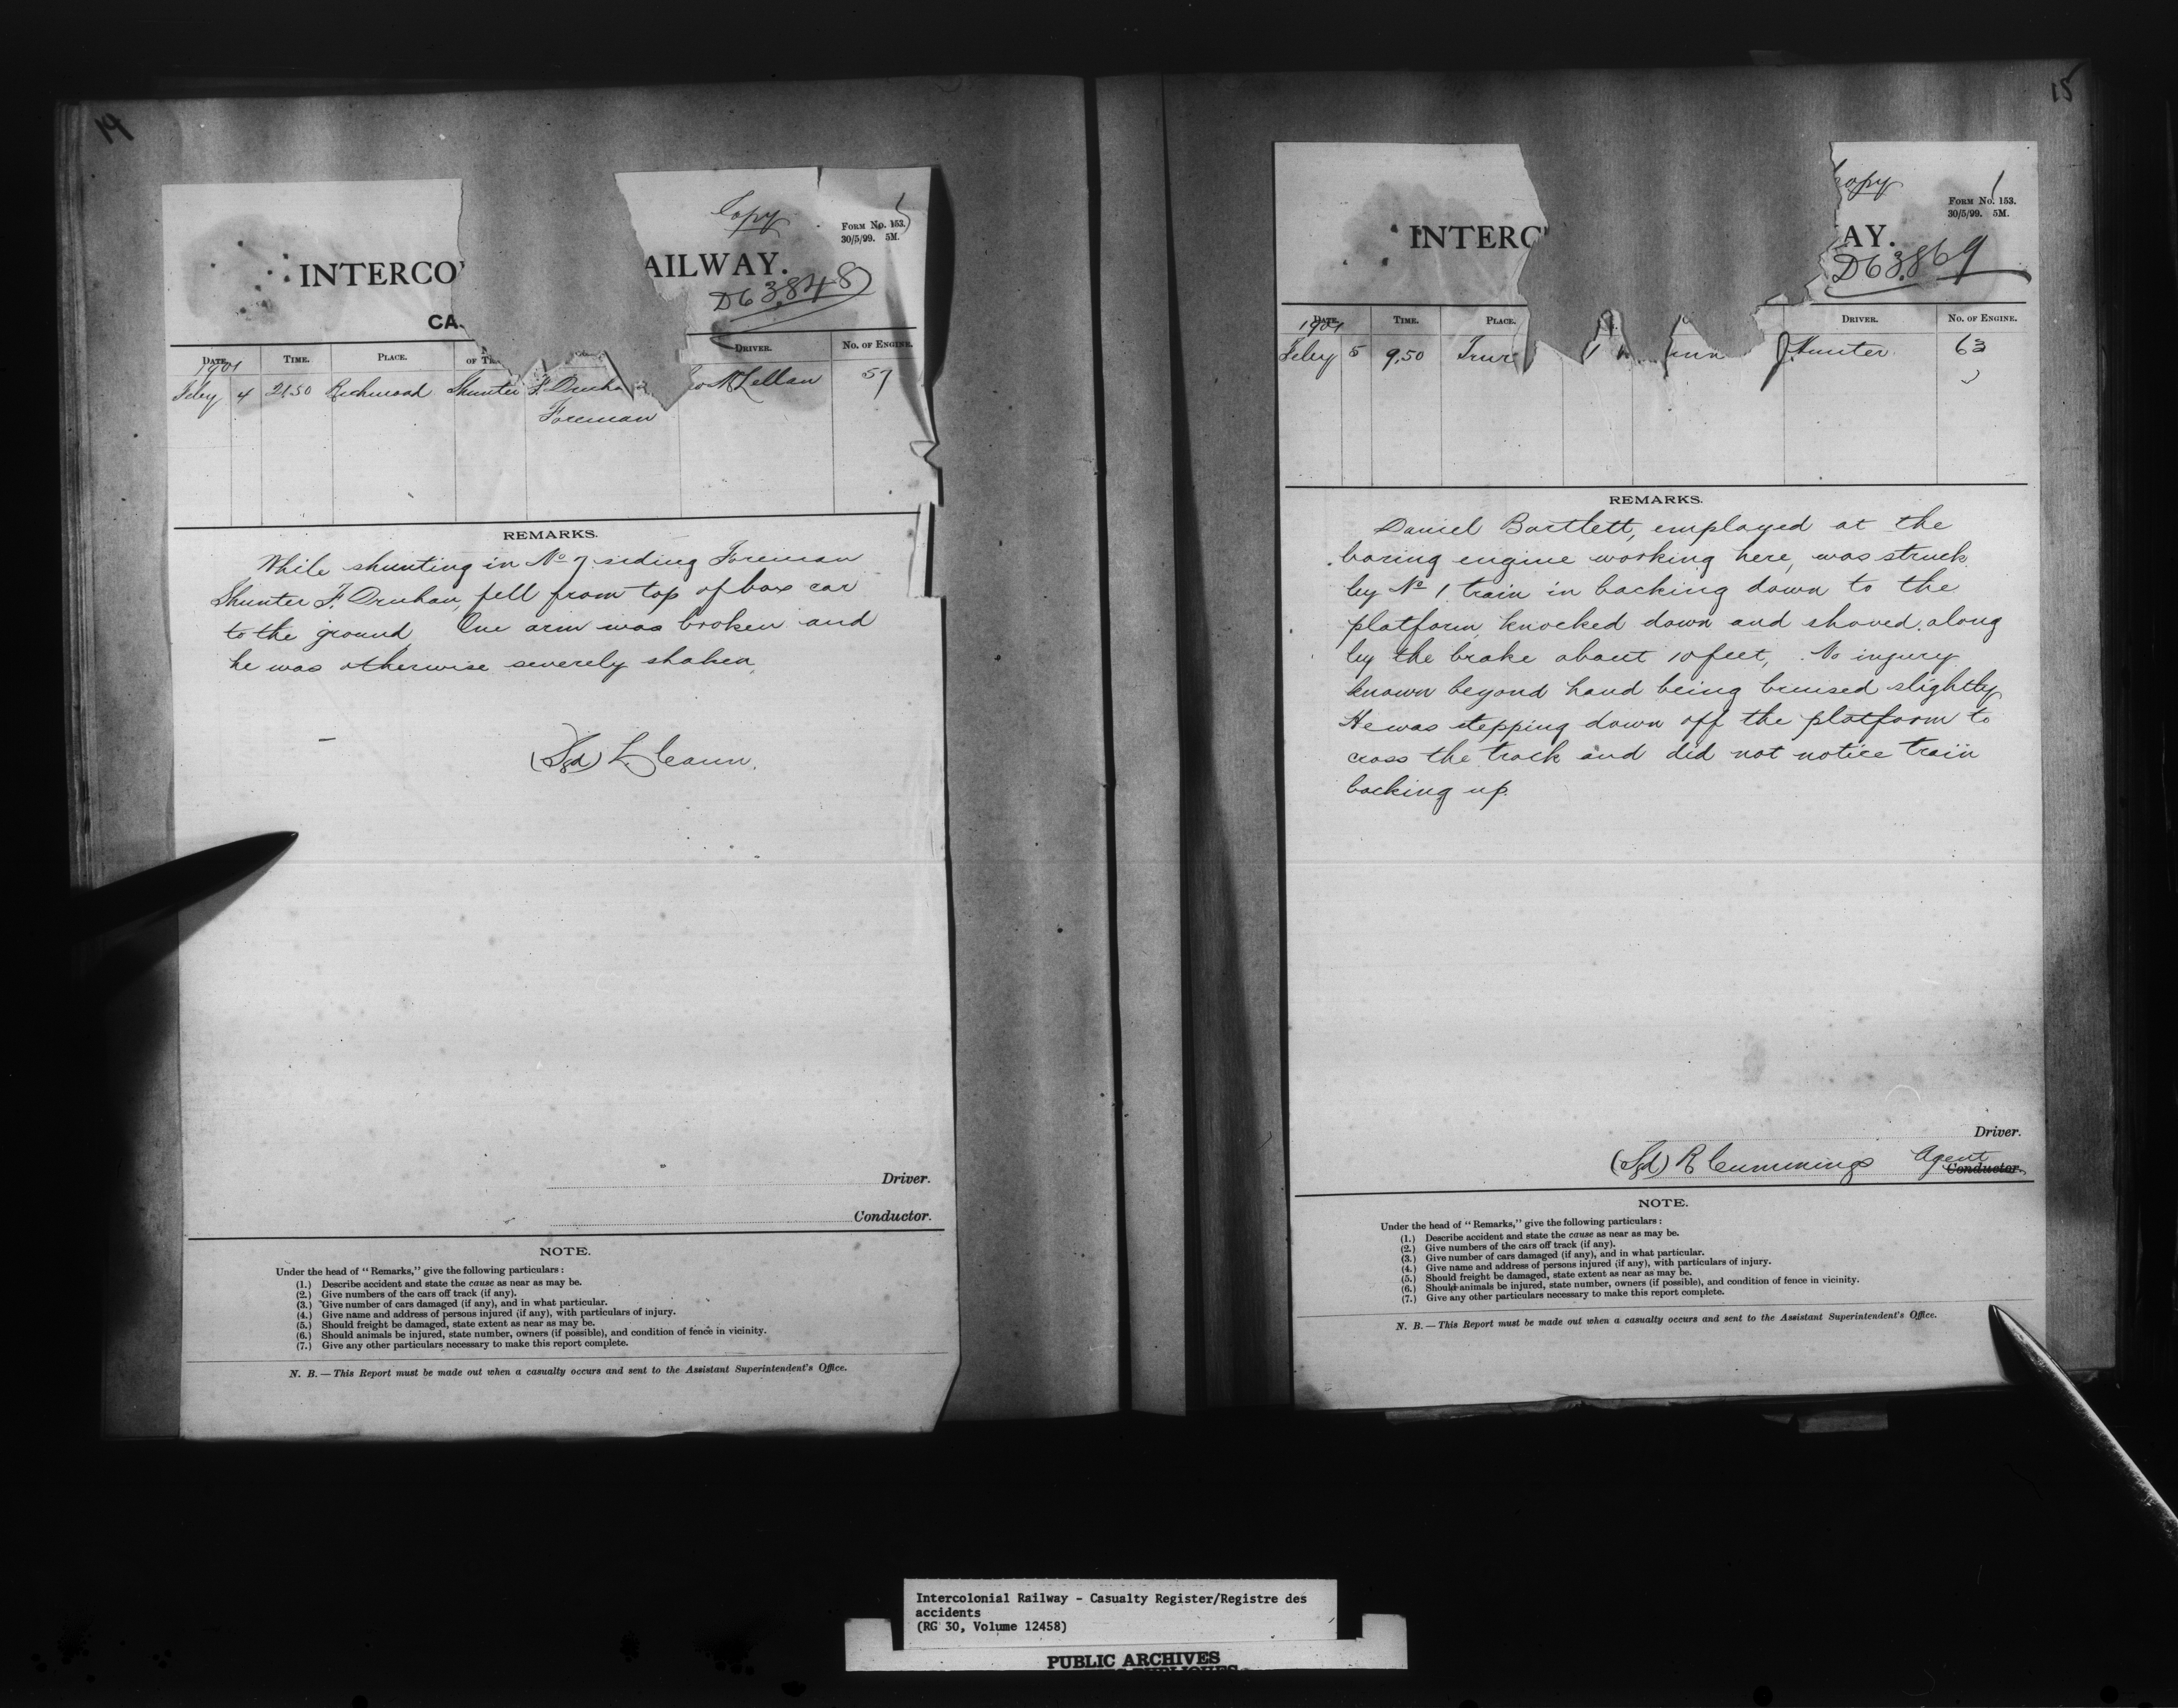 14
Copy
FORM No. 153.
30/5/99. 5M.
INTERCO AILWAY.
D63848
CA
DATE. TIME. PLACE. OF TR DRIVER. No. OF ENGINE.
1901
Feby 4 21.50 Richmond Shunter F. Druha McLellan 57
Foreman
REMARKS.
While shunting in No 7 siding Foreman
Shunter F. Druhan, fell from top of box car
to the ground, One arm was broken and
he was otherwise severely shaken,
(Sgd) L.
Driver.
Conductor.
NOTE.
Under the head of "Remarks," give the following particulars :
(1.) Describe accident and state the cause as near as may be.
(2.) Give numbers of the cars off track (if any).
(3.) Give number of cars damaged (if any), and in what particular.
(4.) Give name and address of persons injured (if any), with particulars of injury.
(5.) Should freight be damaged, state extent as near as may be.
(6.) Should animals be injured, state number, owners (if possible), and condition of fence in vicinity.
(7.) Give any other particulars necessary to make this report complete.
N. B. — This Report must be made out when a casualty occurs and sent to the Assistant Superintendent's Office.
15
Copy
FORM No. 153.
30/5/99. 5M.
INTERC AY.
D63869
DATE. TIME. PLACE. DRIVER. No. OF ENGINE.
1901
Feby 5 9.50 Trur 1 J Hunter 63
REMARKS.
Daniel Bartlett, employed at the
boring engine working here, was struck
by No 1 train in backing down to the
platform, knocked down and shoved along
by the brake about 10 feet, No injury
known beyond hand being bruised slightly
He was stepping down off the platform to
cross the track and did not notice train
backing up.
Driver.
(Sgd) R Cummings Agent
Conductor.
NOTE.
Under the head of "Remarks," give the following particulars :
(1.) Describe accident and state the cause as near as may be.
(2.) Give numbers of the cars off track (if any).
(3.) Give number of cars damaged (if any), and in what particular.
(4.) Give name and address of persons injured (if any), with particulars of injury.
(5.) Should freight be damaged, state extent as near as may be.
(6.) Should animals be injured, state number, owners (if possible), and condition of fence in vicinity.
(7.) Give any other particulars necessary to make this report complete.
N. B. — This Report must be made out when a casualty occurs and sent to the Assistant Superintendent's Office.
Intercolonial Railway - Casualty Register/Registre des
accidents
(RG 30, Volume 12458)
PUBLIC ARCHIVES